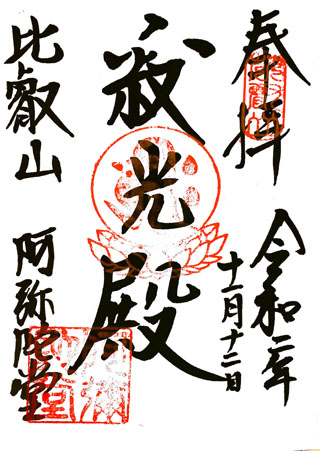 奉拝
令和二年
十一月十二日
寂光殿
比叡山
阿弥陀堂